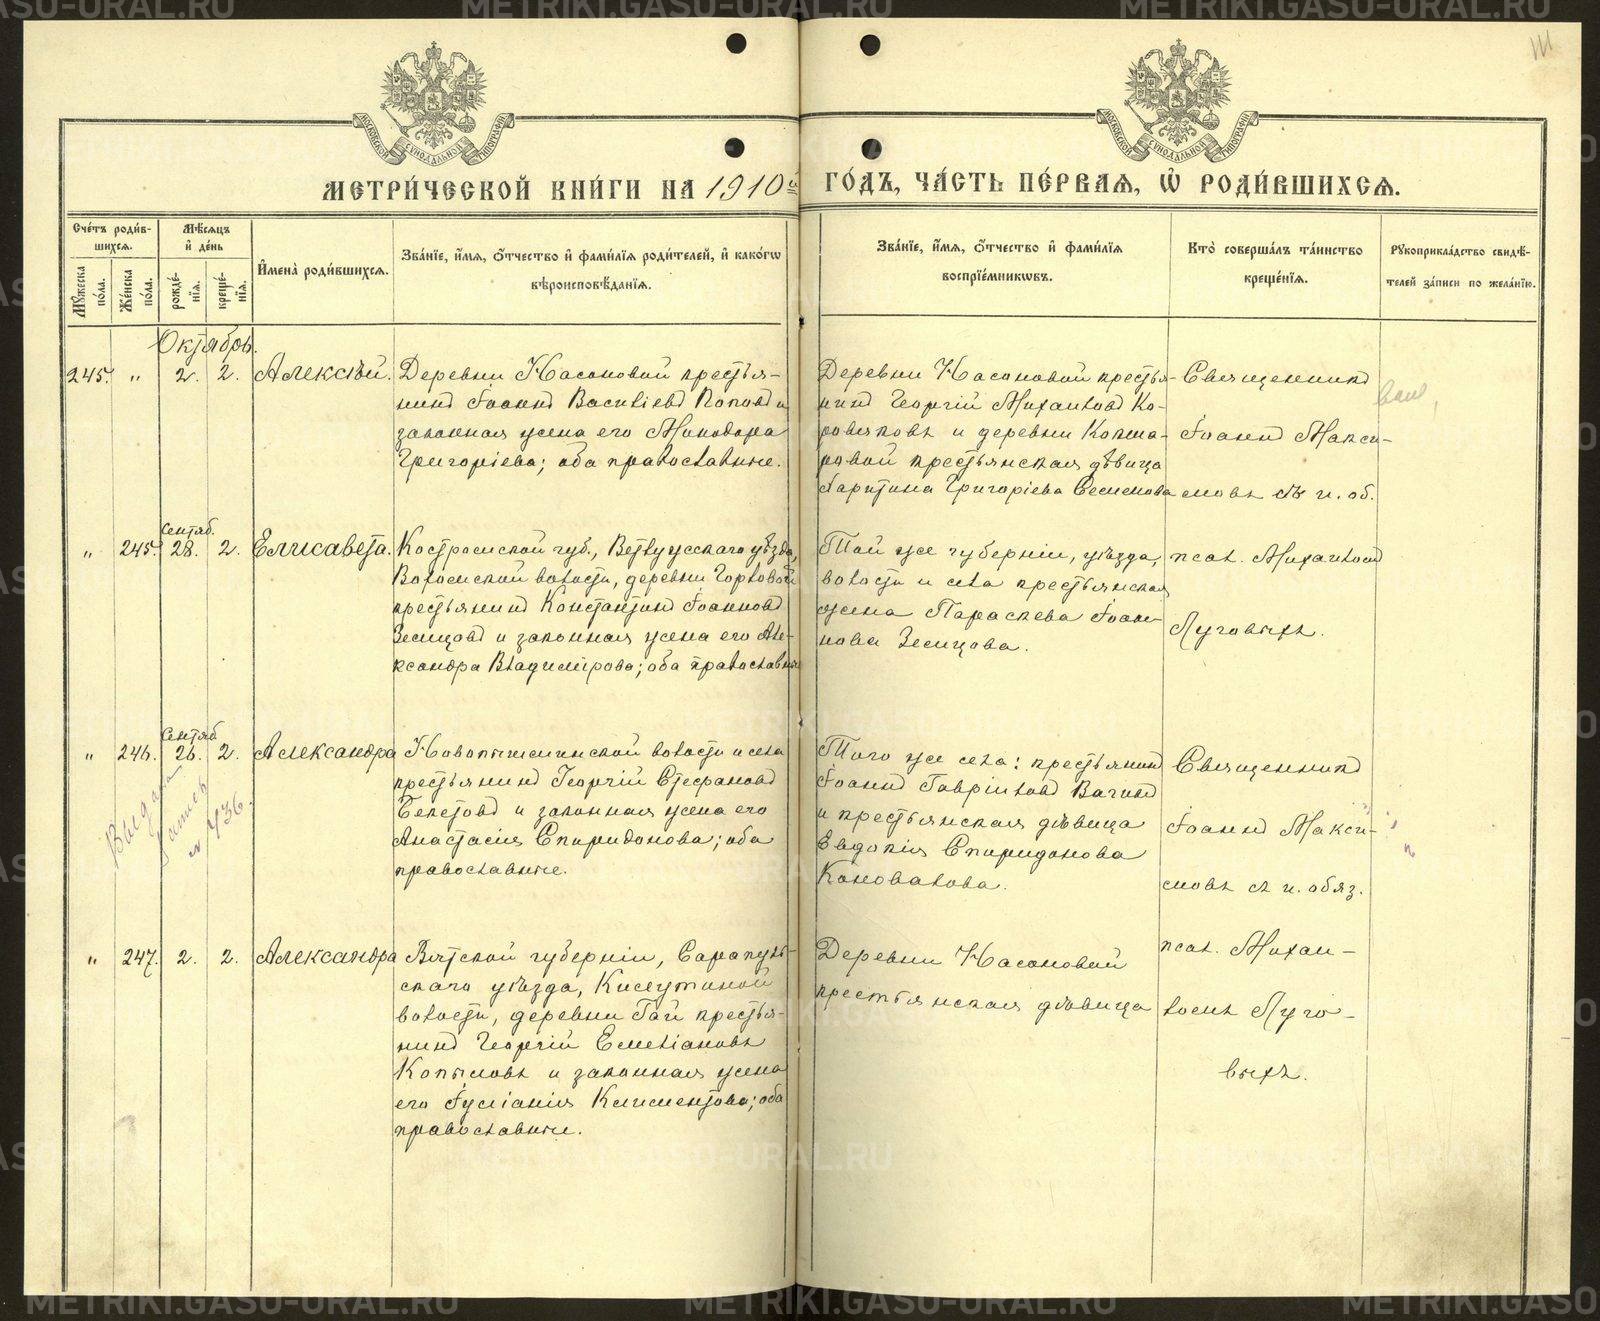 МЕТРИ́ЧЕСКОЙ КНИ́ГИ НА 1910й ГО́ДЪ, ЧА́СТЬ ПЕ́РВАѦ, Ѡ҆ РОДИ́ВШИХСѦ.
Сче́тъ роди́в-
шихсѧ.
Мѣ́сяцъ
и҆ де́нь
Мꙋ́жеска
по́ла.
Же́нска
по́ла.
рожде́-
нїѧ.
креще́-
нїѧ.
И҆мена̀ роди́вшихсѧ.
Зва́нїе, и҆́мѧ, ѻ҆́тчество и҆ фами́лїѧ роди́телей, и҆ како́гѡ
вѣроисповѣ́данїѧ.
Зва́нїе, и҆́мѧ, ѻ҆́тчество и҆ фами́лїѧ
воспрїе́мникѡвъ.
Кто̀ соверша́лъ та́инство
креще́нїѧ.
Рꙋкоприкла́дство свидѣ́-
телей за́писи по жела́нїю.
Октябрь.
245. " 2. 2. Алексѣй.
Деревни Насоновой крестья-
нинъ Іоаннъ Василіевъ Поповъ и
законная жена его Минодора
Григоріева; оба православные.
Деревни Насоновой крестья-
нинъ Георгій Михаиловъ Ко-
ровяковъ и деревни Кокша-
ровой крестьянская дѣвица
Харитина Григоріева Семенова
Священникъ
Іоаннъ Макси-
мовъ съ и. об.
Сентяб.
" 245. 28. 2. Елисавета.
Костромской губ., Ветлужскаго уѣзда,
волости, деревни
крестьянинъ Константинъ Іоанновъ
и законная жена его Але-
ксандра Владимірова; оба православные
Той же губерніи, уѣзда,
волости и села крестьянская
жена Параскева Іоан-
нова
псал. Михаиломъ
Луговыхъ.
Сентяб
" 246. 26. 2. Александра
Новопышминской волости и села
крестьянинъ Георгій Стефановъ
и законная жена его
Анастасія Спиридонова; оба
православные.
Того же села: крестьянинъ
Іоаннъ Гавріиловъ
и крестьянская дѣвица
Евдокія Спиридонова
Коновалова.
Священникъ
Іоаннъ Макси-
мовъ съ и. обяз.
Выдана
№ 736.
" 247. 2. 2. Александра
Вятской губерніи, Сарапуль-
скаго уѣзда,
волости, деревни Гай крестья-
нинъ Георгій Емеліановъ
Копыловъ и законная жена
его Іуліанія Климентова; оба
православные.
Деревни Насоновой
крестьянская дѣвица
псал. Михаи-
ломъ Луго-
выхъ.
МОСКОВСКОЙ СѴНОДАЛЬНОЙ ТИПОГРАФІИ
МОСКОВСКОЙ СѴНОДАЛЬНОЙ ТИПОГРАФІИ
METRIKI.GASO-URAL.RU